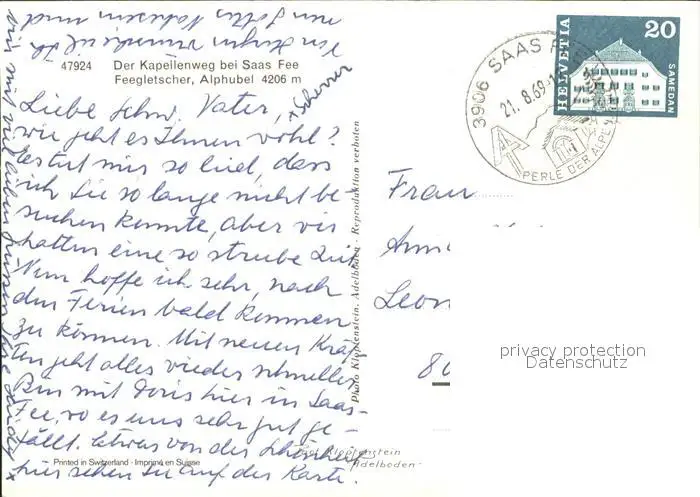 47924 Der Kapellenweg bei Saas Fee
Feegletscher, Alphubel 4206 m
Liebe Schw. Vater,
wie geht es Ihnen wohl?
Es tut mir so leid, dass
ich Sie so lange nicht be-
suchen konnte, aber wir
hatten eine so strube Zeit
Nun hoffe ich sehr, nach
den Ferien bald kommen
zu können. Mit neuen Kräf-
ten geht alles wieder schneller
Bin mit Doris hier in Saas-
Fee, wo es uns sehr gut ge-
fällt. Etwas von der Schönheit
hier sehen Sie auf der Karte.
Von Herzen wünsche ich
nun Gottes Nahesein und
mit lieben Grüssen Ihre
Printed in Switzerland - Imprimé en Suisse
Photo Klopfenstein, Adelboden - Reproduktion verboten
Klopfenstein
Adelboden
3906 SAAS FEE
21.8.69
PERLE DER ALPEN
HELVETIA
20
SAMEDAN
Frau
Leon
privacy protection
Datenschutz